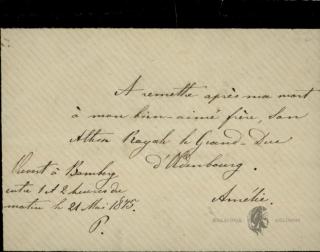 A remettre après ma mort
à mon bien-aimé frère, Son
Altesse Royale le Grand-Duc
d'Oldenbourg.
Amélie.
Ouvert à Bamberg
entre 1 et 2 heures du
matin le 21 Mai 1875.
P.